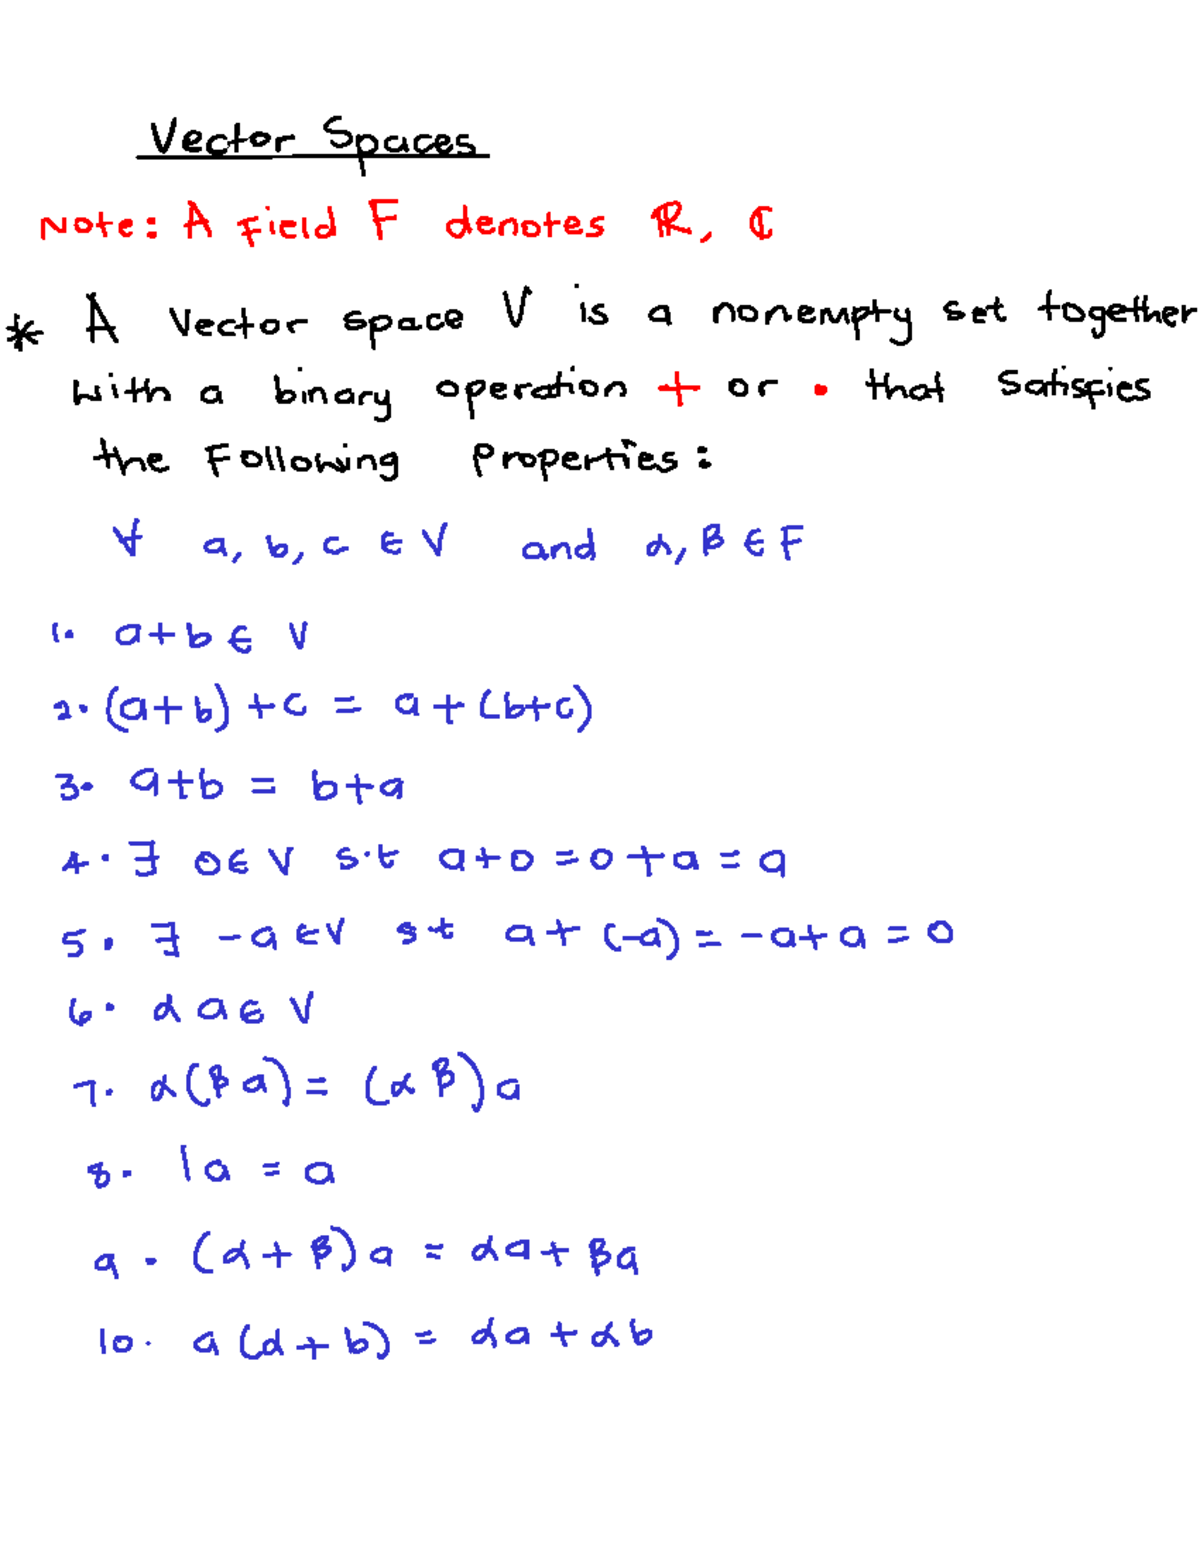 Vector Spaces
Note: A Field F denotes ℝ, ℂ
* A Vector space V is a nonempty set together
with a binary operation + or • that Satisfies
the Following Properties:
∀ a, b, c ∈ V and α, β ∈ F
1. a+b ∈ V
2. (a+b)+c = a+(b+c)
3. a+b = b+a
4. ∃ 0∈V s.t a+0=0+a=a
5. ∃ -a∈V s.t a+(-a)=-a+a=0
6. αa∈V
7. α(βa)=(αβ)a
8. 1a=a
9. (α+β)a=αa+βa
10. a(d+b)=αa+αb